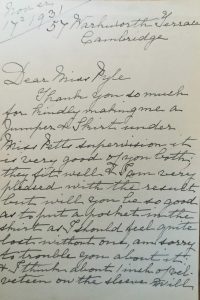 57 Warkworth Terrace
Cambridge
17 / 9 31
Dear Miss Pyle
Thank you so much
for kindly making me a
Jumper & Skirt under
Miss Pitts supervision it
is very good of you both,
they fit well & I am very
pleased with the result
but will you be so good
as to put a pocket in the
skirt as I should feel quite
lost without one, am sorry
to trouble you about it.
& I think about 1 inch of vel-
veteen on the sleeve will